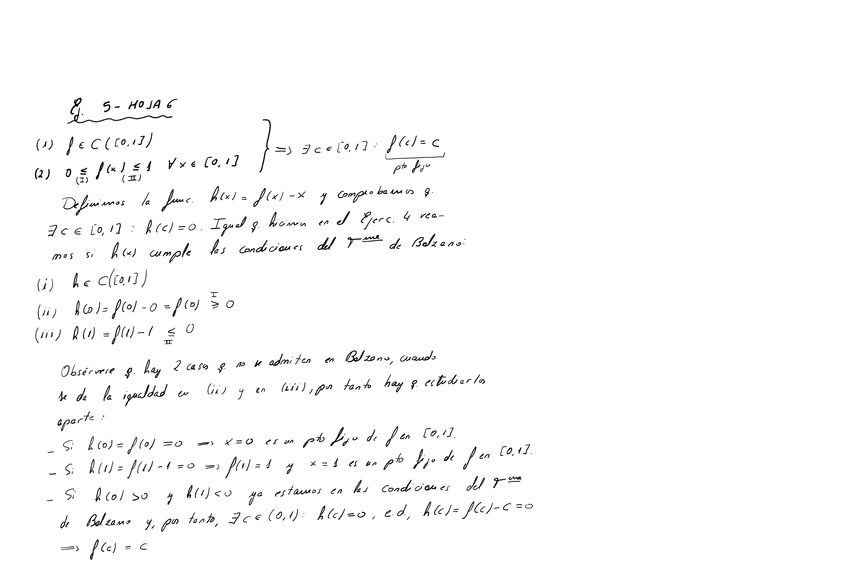 Ej. 5 - HOJA 6
(1) f ∈ C([0,1])
(2) 0 ≤ f(x) ≤ 1 ∀x ∈ [0,1] } ⟹ ∃ c ∈ [0,1] : f(c) = c
(I) (II) pto fijo
Definimos la func. h(x) = f(x) - x y comprobamos q.
∃ c ∈ [0,1] : h(c) = 0. Igual q. hicimos en el Ejerc. 4 vea-
mos si h(x) cumple las condiciones del Tma de Bolzano:
(i) h ∈ C([0,1])
(ii) h(0) = f(0) - 0 = f(0) ≥ 0
I
(iii) h(1) = f(1) - 1 ≤ 0
II
Obsérvese q. hay 2 casos q. no se admiten en Bolzano, cuando
se da la igualdad en (ii) y en (iii), por tanto hay q estudiarlos
aparte:
- Si h(0) = f(0) = 0 ⟹ x = 0 es un pto fijo de f en [0,1].
- Si h(1) = f(1) - 1 = 0 ⟹ f(1) = 1 y x = 1 es un pto fijo de f en [0,1].
- Si h(0) > 0 y h(1) < 0 ya estamos en las condiciones del Tma
de Bolzano y, por tanto, ∃ c ∈ (0,1) : h(c) = 0, e.d., h(c) = f(c) - c = 0
⟹ f(c) = c